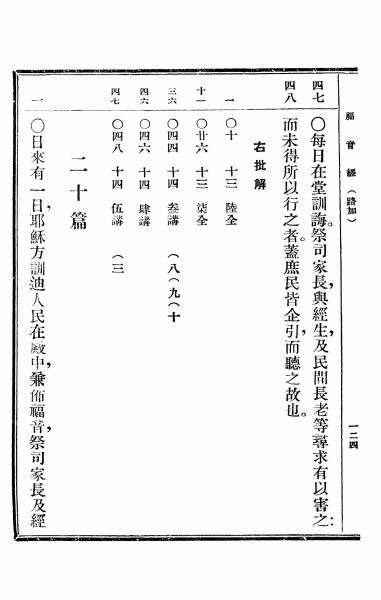 福音經（路加）
一二四
四七 〇每日在堂訓誨。祭司家長，與經生，及民間長老等尋求有以害之：
四八 而未得所以行之者。蓋庶民皆企引而聽之故也。
右批解
一 〇十 十三 陸全
十一 〇廿六 十三 柒全
三六 〇四四 十四 叁講 （八（九（十
四六 〇四六 十四 肆講
四七 〇四八 十四 伍講 （三
二十篇
一 〇日來有一日，耶穌方訓迪人民在殿中，兼佈福音，祭司家長及經